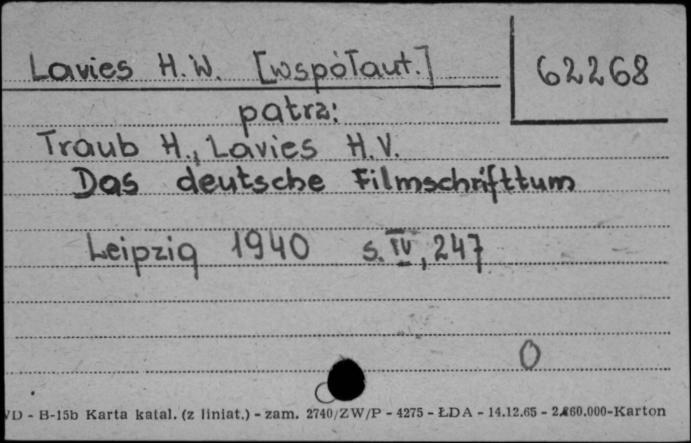 Lavies H.W. [współaut.] 62268
patrz:
Traub H., Lavies H.V.
Das deutsche Filmschrifttum
Leipzig 1940 s. IV, 247
0
VD - B-15b Karta katal. (z liniat.) - zam. 2740/ZW/P - 4275 - ŁDA - 14.12.65 - 2.260.000-Karton